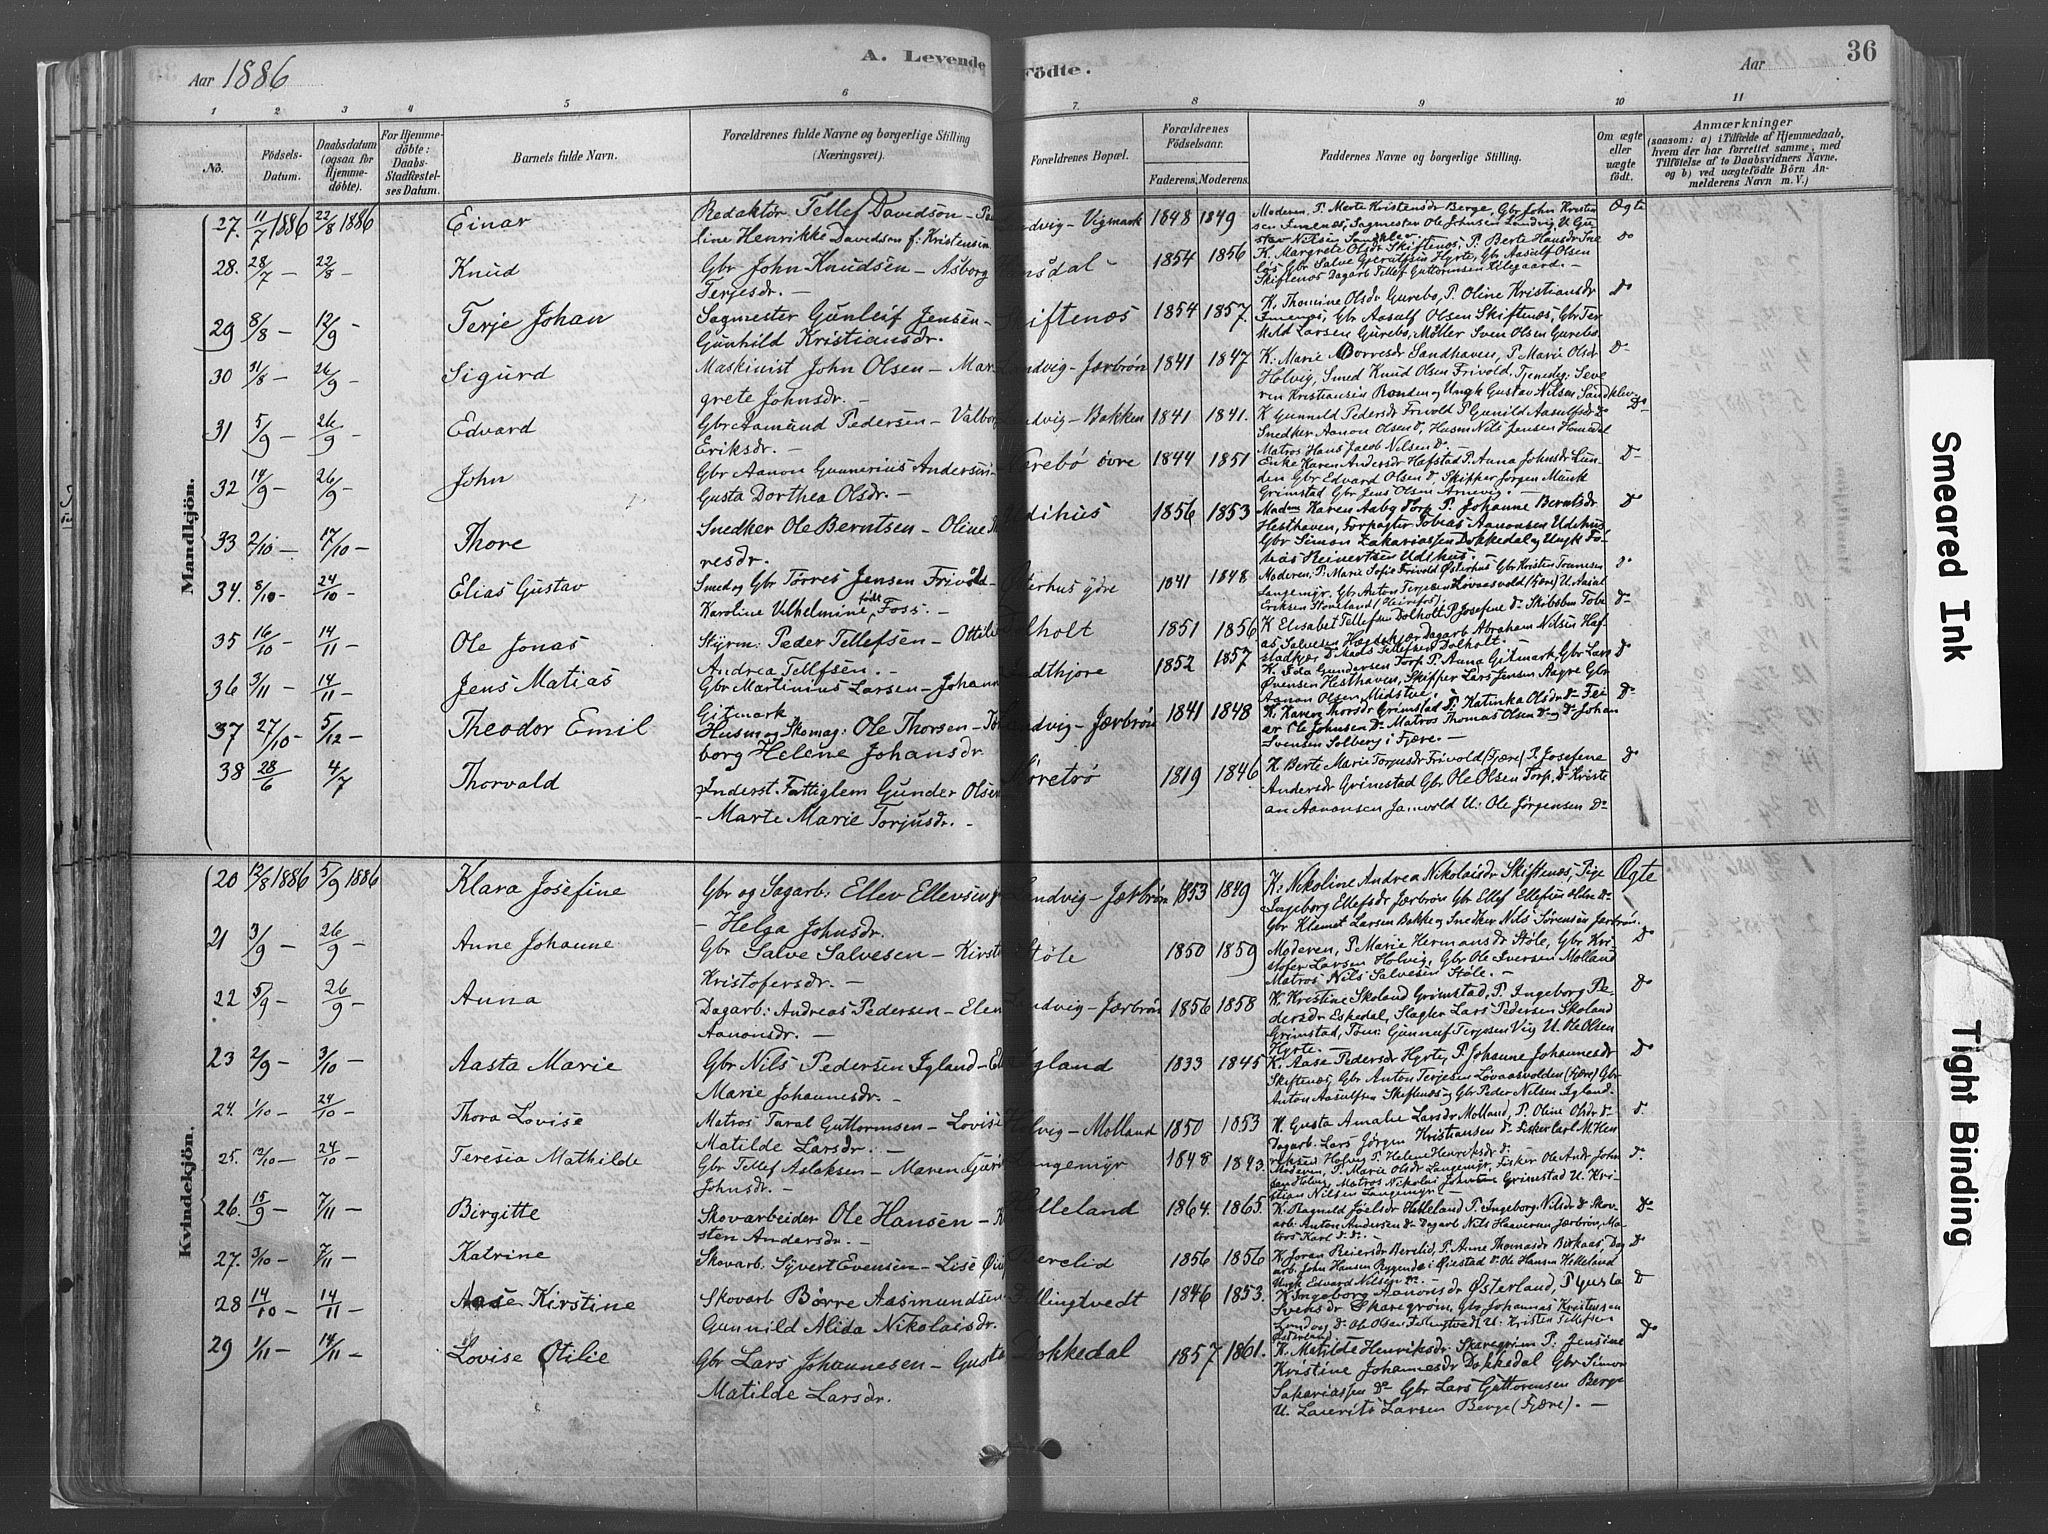 Aar 1886
A. Levende Födte.
Aar
36
1 2 3 4 5 6 7 8 9 10 11
No.
Födsels-Datum.
Daabsdatum (ogsaa for Hjemme-döbte).
For Hjemme-döbte: Daabs-Stadfæstel-ses Datum.
Barnets fulde Navn.
Forældrenes fulde Navne og borgerlige Stilling (Næringsvei).
Forældrenes Bopæl.
Forældrenes Födselsaar.
Faderens. Moderens.
Faddernes Navne og borgerlige Stilling.
Om ægte eller uægte födt.
Anmærkninger
(saasom: a) i Tilfælde af Hjemmedaab, hvem der har forrettet samme, med Tilföielse af to Daabsvidners Navne, og b) ved uægtefödte Börn An-melderens Navn m. V.)
Mandkjön.
27. 11/7 1886 22/8 1886 Einar Redaktør Tellef Davidson – Landvig – Vigmark 1848 1849 Moderen, P. Merte Kristensdr Berge, Gbr John Kristen Ægte
line Henrikke Davidson f: Kristensen sen Imenæs, Sagmester Ole Johnsen Landvig U. Gu-
stav Nilsen Sandklev. –
28. 28/7 – 22/8 Knud Gbr John Knudsen – Asborg Hansdal – 1854 1856 K. Margrete Olsdr Skiftenæs, P. Berte Hansdr Do
Terjesdr. – Gbr Salve Hyrte, Gbr Aasulf Olsen
Skiftenæs Dagarb Tellef Guttormsen Lilegaard. –
29 8/8 – 12/9 – Terje Johan Sagmester Gunleif Jensen – Skiftenæs 1854 1857. K. Thomine Olsdr Gurebo, P. Oline Kristiansdr Do
Gunhild Kristiansdr. Imenæs, Gbr Aasulf Olsen Skiftenæs, Gbr Ter
Larsen Gurebo, Møller Sven Olsen Gurebo.
30 31/8 – 26/9 – Sigurd Maskinist John Olsen – Mar Landvig – Jærbrøn 1841 1847 K: Marie Børresdr Sandhaven, P. Marie Olsdr D–
grete Johnsdr. – Holvig, Smed Knud Olsen Frivold, Tjenedrg. Seve
ren Kristiansen Ronden og Ungk Gustav Nilsen Sandklev.
31 5/9 – 26/9 – Edvard Gbr Aamund Pedersen – Valbor Landvig – Bakken 1841 1841. K Gunneld Pedersdr Frivold P. Gunild Aasulfsdr Do D–
Eriksdr. – Snedker Aanon Olsen Do, Husm Nils Jensen
Matros Hans Jacob Nilsen Do. –
32 14/9 – 26/9 – John Gbr Aanon Gunnerius Andersen – Nørebø øvre 1844 1851 Enke Karen Andersdr Hafstad P. Anna Johnsdr Lun- D–
Gusta Dorthea Olsdr. – den Gbr Edvard Olsen Do, Skipper Jørgen Munk
Grimstad Gbr Jens Olsen –
33 2/10 – 17/10 – Thore Snedker Ole Berntsen – Oline Udihus 1856 1853 Madm Karen Aaby Torp P. Johanne Berntsdr Do
resdr. – Hesthaven, Forpagter Tobias Aanonsen Udihus
Gbr Simon Zakariassen Dokkedal og Ungk To-
bias Reinertsen Udihus. –
34. 8/10 – 24/10 – Elias Gustav Smed og Gbr Tørres Jensen Frivold – Østerhus ydre 1841 1848 Moderen, P. Marie Sofie Frivold Østerhus Gbr Kristen Do
Karoline Vilhelmine født Foss. – Langemyr. Gbr Anton Terjesen Løvaasvold (Fjære) U. Aasul
Eriksen
35 16/10 – 14/11 – Ole Jonas Styrm: Peder Tellefsen – Ottilie Dolholt 1851 1856 K Elisabet Tellefsdr Dolholt P. Josefine Do Skibsbm Tobi D–
Andrea Tellefsen. – as Salvesen Dagarb Abraham Nilsen
Do Mads Tellefsen Dolholt.
36 3/11 – 14/11 – Jens Matias Gbr Martinius Larsen – Johanne Indtjore 1852 1857 K. Ida Gundersen Torp P. Anna Gitmark Gbr Lars Do
Gitmark Øvensen Hesthaven, Skipper Lars Jensen Aagre Gbr
Aanon Olsen Midstve. –
37 27/10 – 5/12 – Theodor Emil Husm og Skomag: Ole Thorsen – Landvig – Jærbrøn 1841 1848 K. Karen Thorsdr Grimstad P. Katinka Olsdr Do D–
borg Helene Johansdr. Ole Johnsen Do Matros Thomas Olsen Do og Do Johan
Svensen Solberg i Fjære. –
38 28/6 4/7 Thorvald Inderst Fattiglem Gunder Olsen Nøretrø 1819 1846 K Berte Marie Torjusdr Frivold (Fjære) P. Josefine Do
– Marte Marie Torjusdr. – Andersdr Grimstad Gbr Ole Olsen Torp. Do Kristi
an Aanonsen U: Ole Jørgensen Do
Kvindekjön.
20 12/8 1886 5/9 1886 Klara Josefine Gbr og Sagarb: Ellev Ellevsen Landvig – Jærbrøn 1853 1849 K: Nikoline Andrea Nikolaisdr Skiftenæs, Pige Ægte
– Helga Johnsdr. Ingeborg Ellefsdr Jærbrøn Gbr Ellef Ellefsen Do
Gbr Klemet Larsen Bakke og Snedker Nils Sørensen Jærbrøn.
21 3/9 – 26/9 – Anne Johanne Gbr Salve Salvesen – Kirste Støle 1850 1859 Moderen, P. Marie Hermansdr Støle, Gbr Kri- Do
Kristofersdr. – stofer Larsen Holvig, Gbr Ole Iversen Molland
Matros Nils Salvesen Støle. –
22 5/9 – 26/9 – Anna Dagarb: Andreas Pedersen – Elen Landvig – Jærbrøn 1856 1858 K. Kristine Skoland Grimstad, P. Ingeborg Pe- Do
Aanonsdr. – dersdr Espedal, Slagter Lars Pedersen Skoland
Grimstad, Tøm: Gunnuf Terjesen Vig U. Ole Olsen
Hyrte. –
23 2/9 – 3/10 – Aasta Marie Gbr Nils Pedersen Igland – El Igland 1833 1845 K. Aase Pedersdr Hyrte, P. Johanne Johannesdr Do
Marie Johannesdr. – Skiftenæs, Gbr Anton Terjesen Løvaasvolden (Fjære) Gbr
Anton Aasulfsen Skiftenæs og Gbr Peder Nilsen Igland. –
24. 1/10 – 24/10 – Thora Lovise Matros Taral Guttormsen – Lovise Holvig – Molland 1850 1853 K. Gusta Amalie Larsdr Molland, P. Oline Olsdr Do d.
Matilde Larsdr. – Dagarb: Lars Jørgen Kristiansen Do Fisker Carl M. Hen
riksen Holvig P. Helene Henriksdr Do
25. 12/10 – 24/10 – Teresia Mathilde Gbr Tellef Aslaksen – Maren Langemyr 1848 1843. Moderen, P. Marie Olsdr Langemyr, Fisker Ole Andr. John D.
Johnsdr. – sen Holvig, Matros Nikolai Grimstad U. Kri-
stian Nilsen Langemyr. –
26. 15/9 – 7/11 – Birgitte Skovarbeider Ole Hansen – K Helleland 1864. 1865. K. Ragnild Joelsdr Helleland P. Ingeborg Nilsdr Do Skov- Do
sten Andersdr. – arb: Anton Andersen Do Dagarb Nils Haaversen Jærbrøn, Ma
tros Karl Do. –
27. 3/10 – 7/11 – Katrine Skovarb. Syvert Evensen – Lise Berelid 1856 1856 K. Joran Reiersdr Berelid, P. Anne Thomasdr Birkaas, Dag Do
arb. John Hansen Rygene i Øiestad Do Ole Hansen Helleland
Ungk Edvard Nilsen Do. –
28 14/10 – 14/11 – Aase Kirstine Skovarb Børre Aasmundsen – Fillingtvedt 1846 1853. K. Ingeborg Aanonsdr Østerland, P Gusta D
Gunnild Alida Nikolaisdr. Svensdr Skaregrøm, Gbr Johannes Kristensen
Do Ole Olsen U: Kristen Tellefsen
Østerland. –
29 1/11 – 14/11 – Lovise Otilie Gbr Lars Johannesen – Gusta Dokkedal 1857 1861. K. Matilde Henriksdr. Skaregrøm P. Jensine Do
Matilde Larsdr. Kristine Johannesdr Dokkedal Gbr Simon
Sakariassen Do Gbr Lars Guttormsen Berge
U. Laurits Larsen Berge (Fjære). –
Smeared Ink
Tight Binding